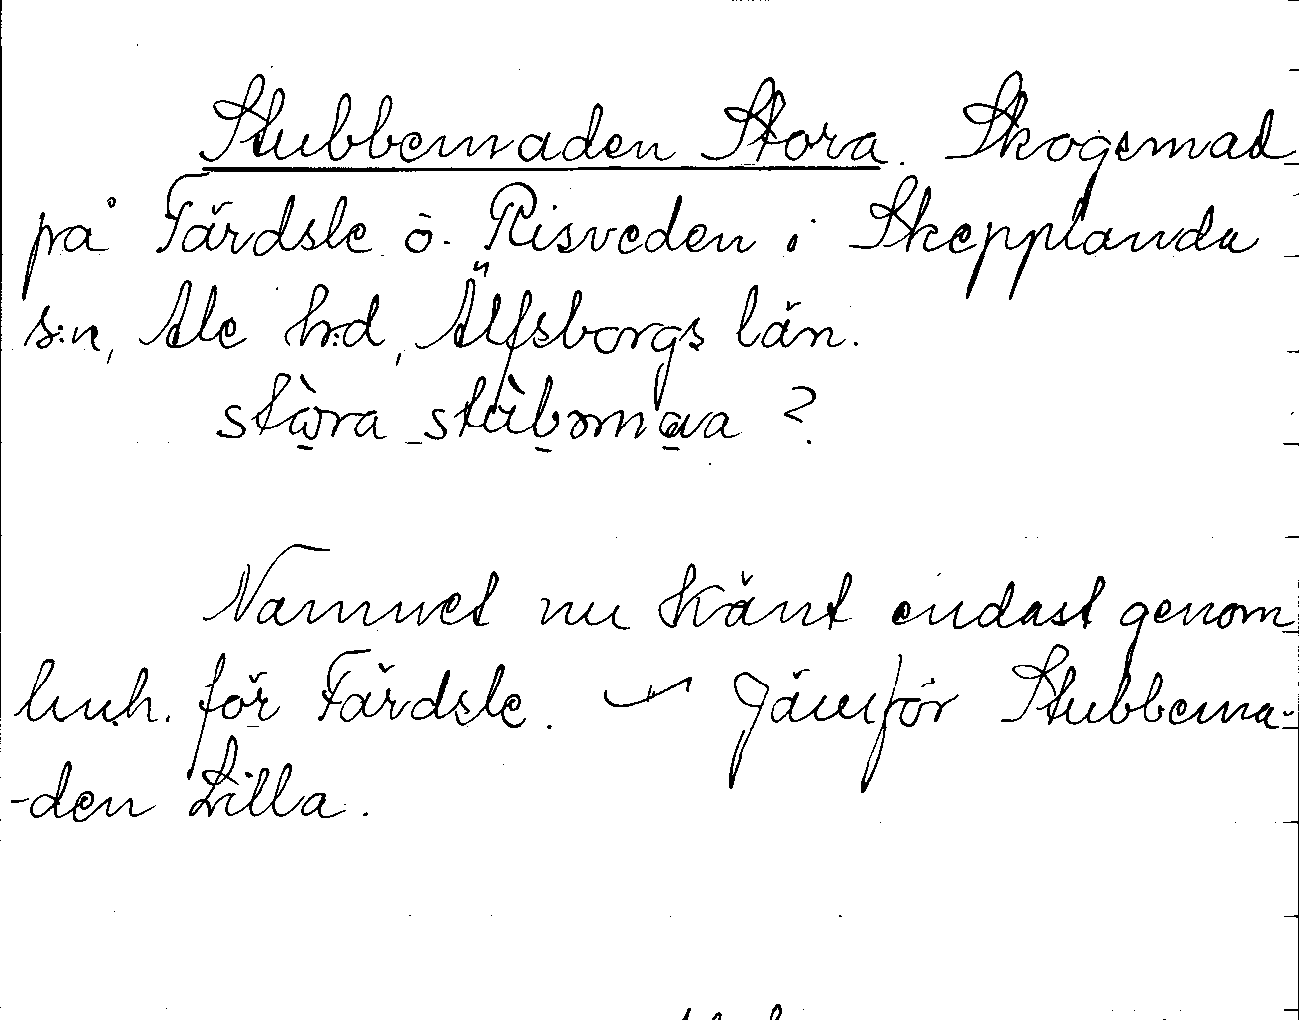 Stubbemaden Stora. Skogsmad
på Färdsle ö. Risveden i Skepplanda
s:n, Ale h:d, Älfsborgs län.
stòra stùbəmava ?
Namnet nu känt endast genom
lnh. för Färdsle. — Jämför Stubbema-
-den Lilla.